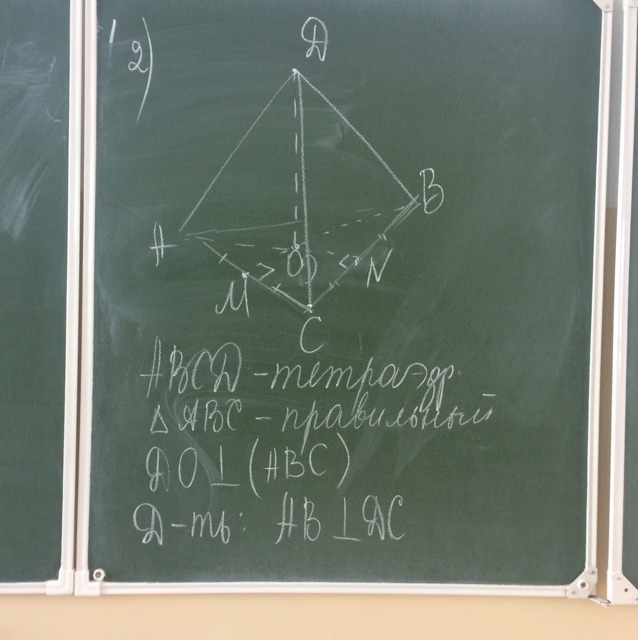 2)
D
B
A
O
N
M
C
ABCD - тетраэдр.
△ ABC - правильный
DO ⊥ (ABC)
Д-ть: AB ⊥ DC